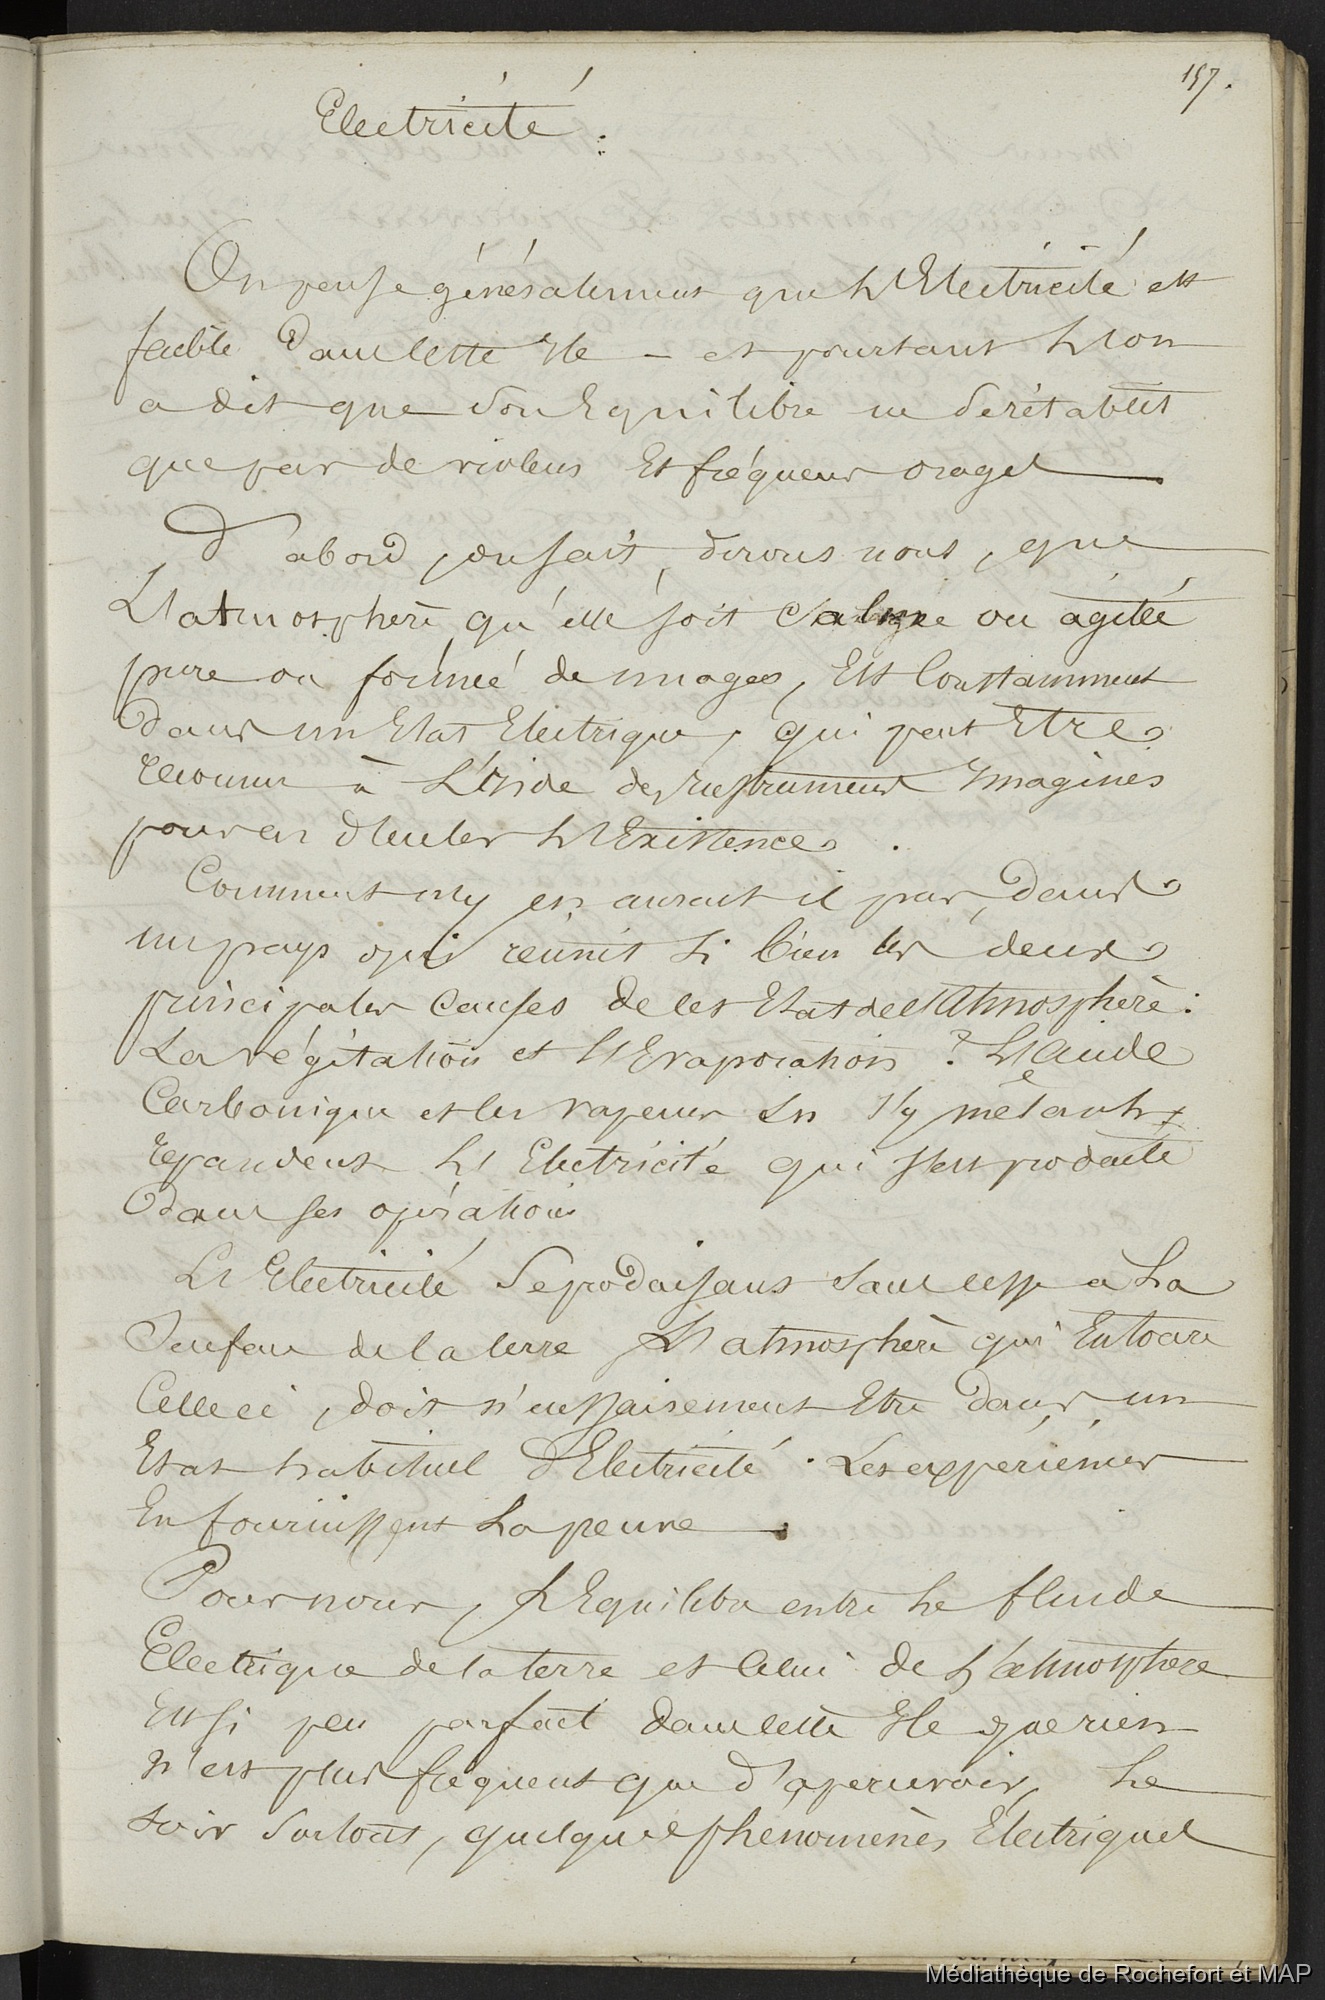 157.
Electricité.
On pense généralement que l'Electricité est
faible dans cette Ile — et pourtant l'on
a dit que son Equilibre ne se rétablit
que par de violens Et fréquens orages
D'abord, on sait, dirons nous, que
L'atmosphère qu'elle soit Calme ou agitée
pure ou formée de nuages, Est Constamment
Dans un Etat Electrique, qui peut Etre
reconnu à L'aide des Instrumens Imagines
pour en d'ecter L'Existence.
Comment n'y en aurait il pas, dans
un pays qui reunit si bien les deux
principales Causes de cet Etat de l'Atmosphère :
La végétation et l'Evaporation ? L'acide
Carbonique et les vapeurs en s'y mêlant
repandent L'Electricité qui s'est produite
dans ses opérations
L'Electricité Se produisant sans cesse à La
Surface de la terre L'atmosphère qui Entoure
Celle ci, doit n'cessairement Etre dans un
Etat habituel d'Electricité. Les expériences
En fournissent La preuve.
Pour nous, L'Equilibre entre Le fluide
Electrique de la terre et Celui de L'atmosphere
Est si peu parfait dans cette Ile que rien
n'est plus fréquent que d'apercevoir, Le
soir surtout, quelques phénomènes Electriques
Médiathèque de Rochefort et MAP